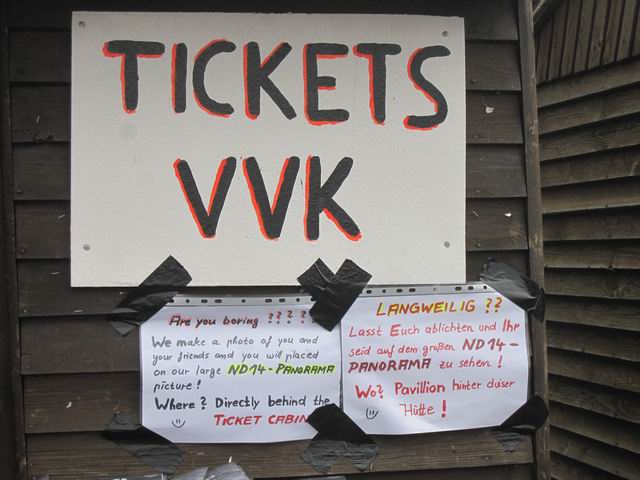 TICKETS
VVK
Are you boring ????
We make a photo of you and
your friends and you will placed
on our large ND14-PANORAMA
picture!
Where? Directly behind the
TICKET CABIN
LANGWEILIG ??
Lasst Euch ablichten und Ihr
seid auf dem großen ND14-
PANORAMA zu sehen!
Wo? Pavillion hinter dieser
Hütte!